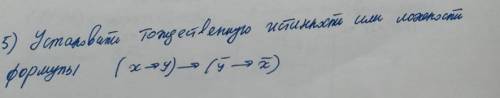 5) Установить тождественную истинность или ложность
формулы (x→y)→(ȳ→x̄)